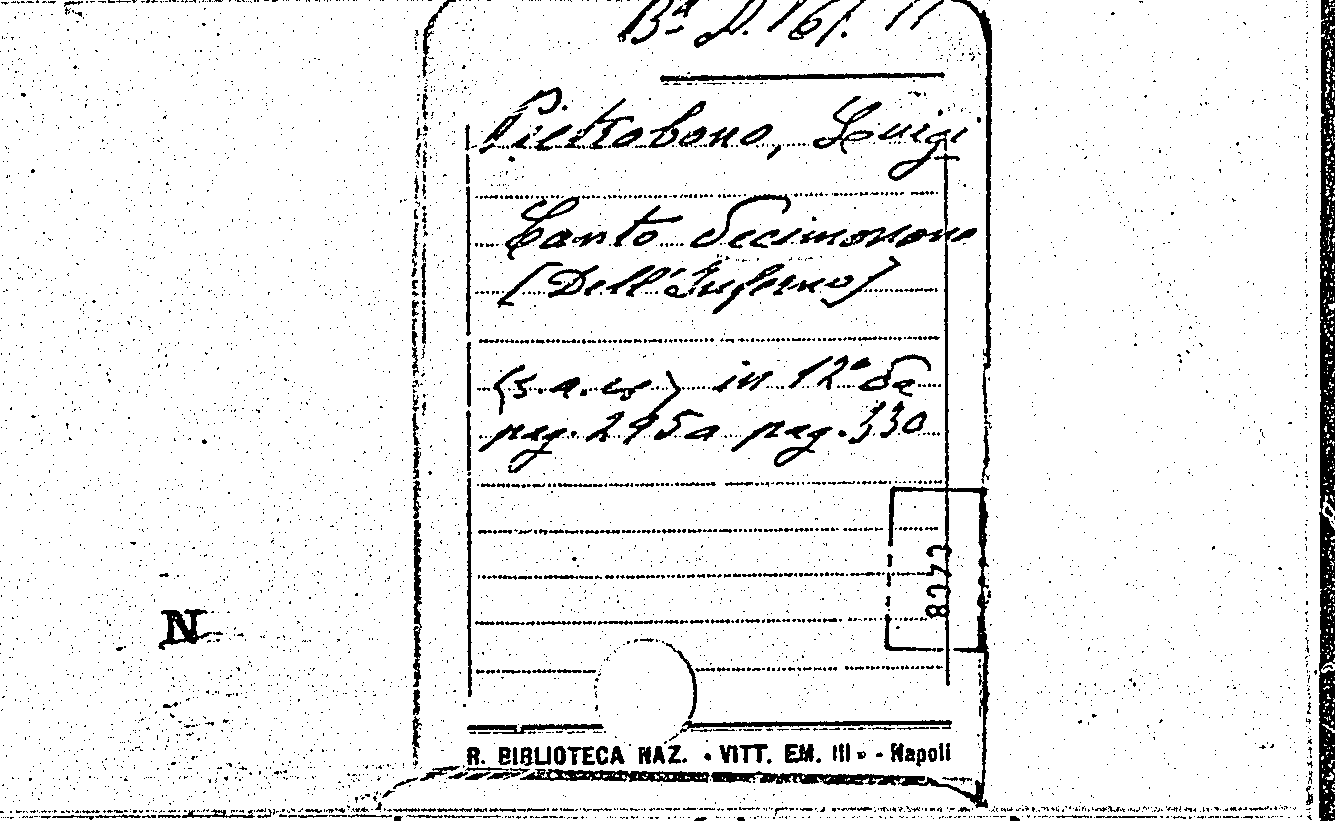 Bª D. 161. 11
Pietrobono, Luigi
Canto decimonono
[Dell'Inferno]
(s.a.es) in 12° da
pag. 295 a pag. 330
8273
N
R. BIBLIOTECA NAZ. « VITT. EM. III » - Napoli